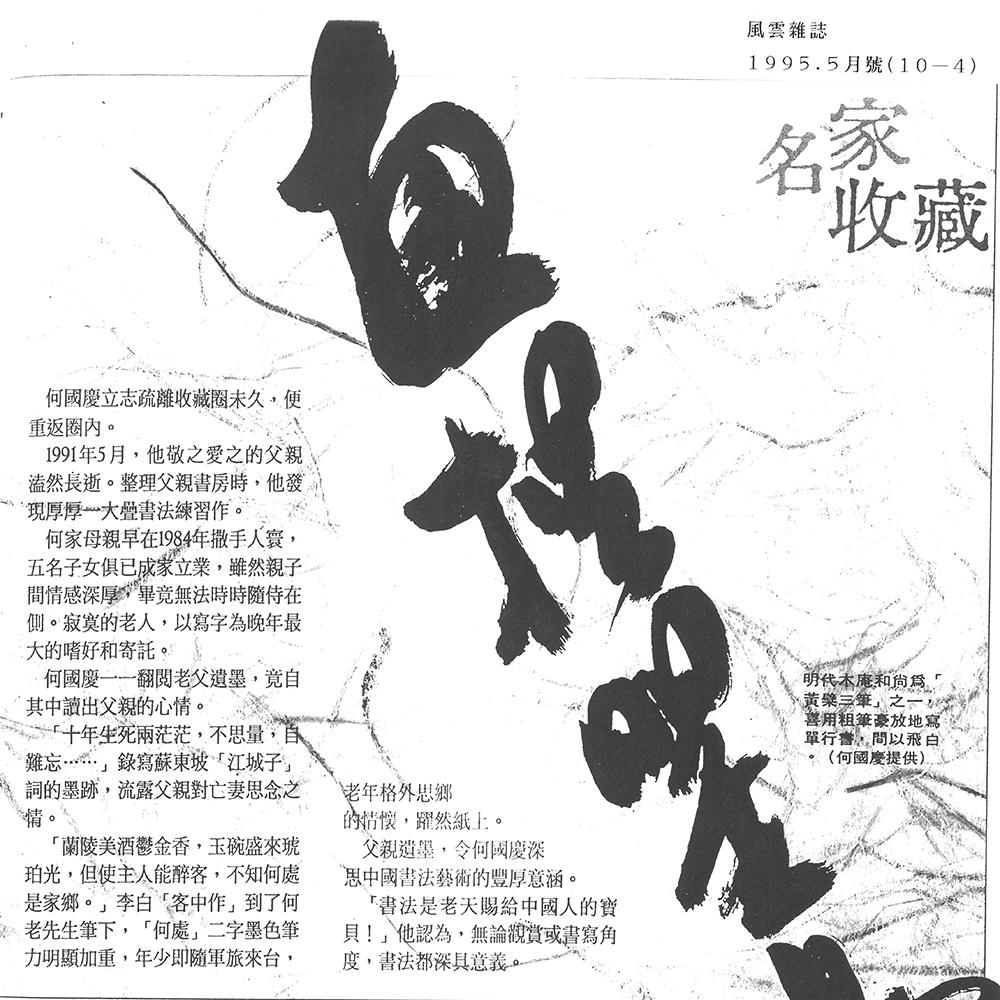 風雲雜誌
1995.5月號(10－4)
名家
收藏
何國慶立志疏離收藏圈未久，便
重返圈內。
1991年5月，他敬之愛之的父親
溘然長逝。整理父親書房時，他發
現厚厚一大疊書法練習作。
何家母親早在1984年撒手人寰，
五名子女俱已成家立業，雖然親子
間情感深厚，畢竟無法時時隨侍在
側。寂寞的老人，以寫字為晚年最
大的嗜好和寄託。
何國慶一一翻閱老父遺墨，竟自
其中讀出父親的心情。
「十年生死兩茫茫，不思量，自
難忘……」錄寫蘇東坡「江城子」
詞的墨跡，流露父親對亡妻思念之
情。
「蘭陵美酒鬱金香，玉碗盛來琥
珀光，但使主人能醉客，不知何處
是家鄉。」李白「客中作」到了何
老先生筆下，「何處」二字墨色筆
力明顯加重，年少即隨軍旅來台，
老年格外思鄉
的情懷，躍然紙上。
父親遺墨，令何國慶深
思中國書法藝術的豐厚意涵。
「書法是老天賜給中國人的寶
貝！」他認為，無論觀賞或書寫角
度，書法都深具意義。
明代木庵和尚為「
黃檗三筆」之一，
喜用粗筆豪放地寫
單行書，間以飛白
。（何國慶提供）